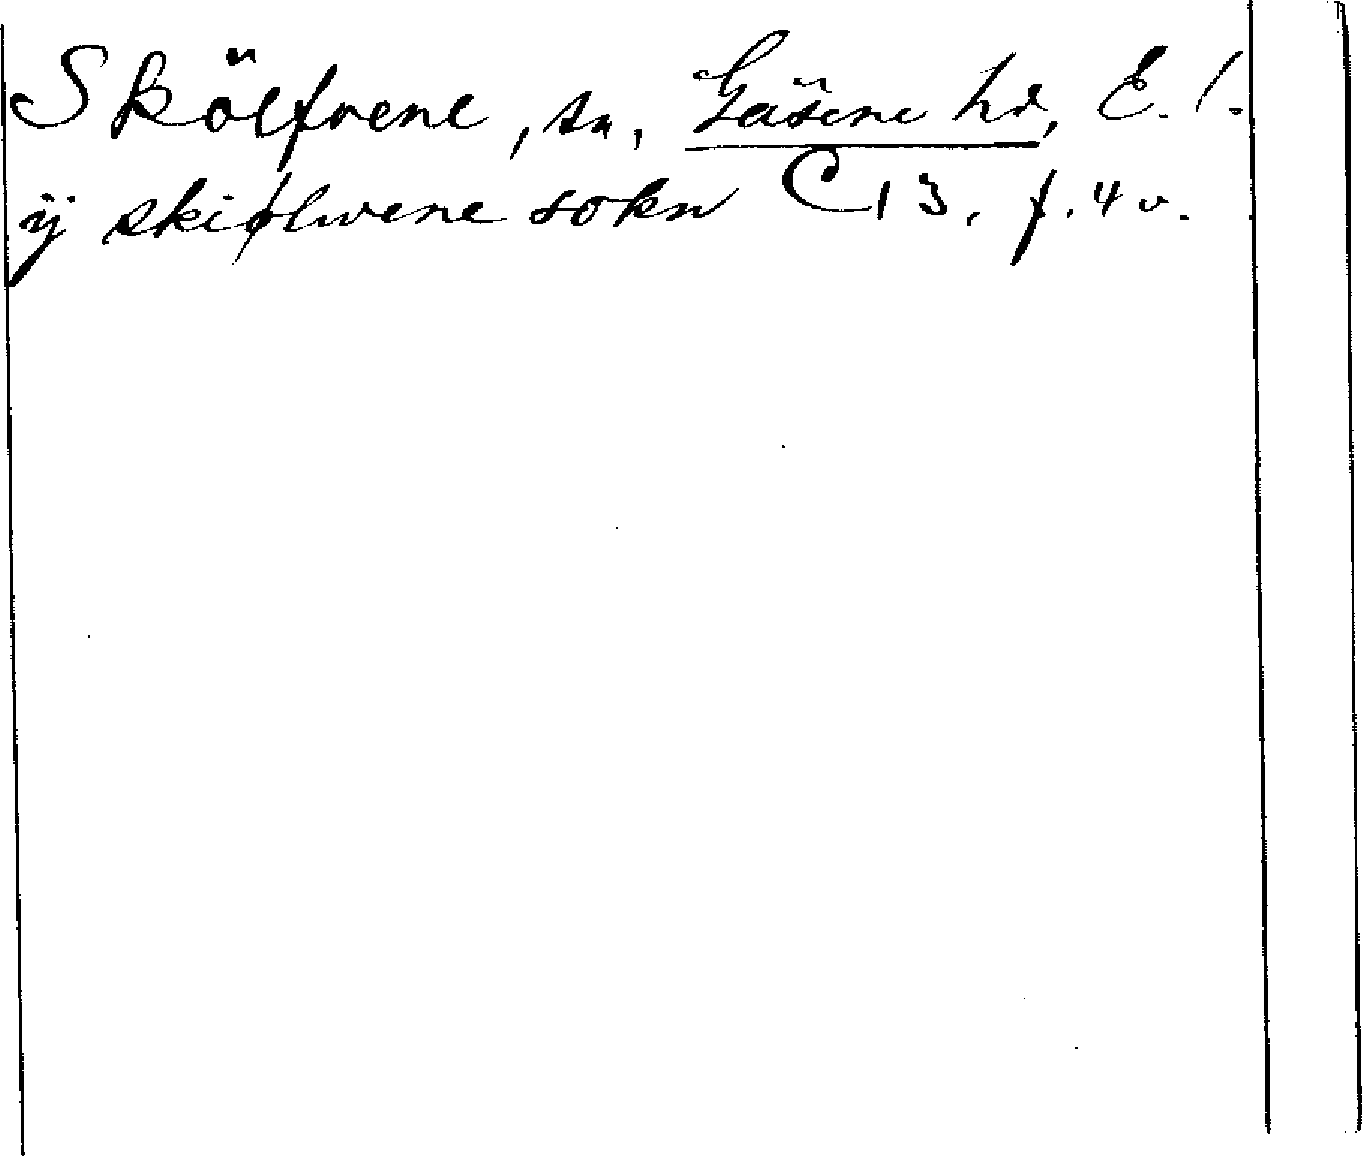 Skölfvene, sn, Gäsene hd, E. l.
ij skiølwene sokn C 13. f. 4 v.